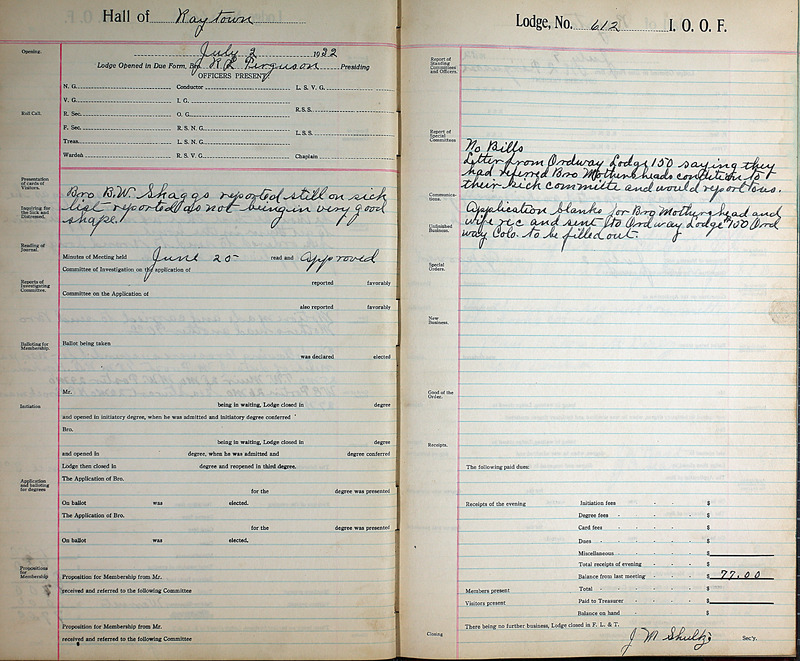 Hall of Raytown
July 2 1932
Opening.
Lodge Opened in Due Form, Bro. J R L Ferguson Presiding
OFFICERS PRESENT:
Roll Call.
N. G. Conductor L. S. V. G.
V. G. I. G.
R. S. S.
R. Sec. O. G.
F. Sec. R. S. N. G.
L. S. S.
Treas. L. S. N. G.
Warden R. S. V. G. Chaplain
Presentation of cards of Visitors.
Bro B.W. Skaggs reported still on sick
Inquiring for the Sick and Distressed.
list reported as not being in very good
shape.
Reading of Journal.
Minutes of Meeting held June 25 read and approved
Committee of Investigation on the application of
reported favorably
Reports of Investigating Committee.
Committee on the Application of
also reported favorably
Balloting for Membership.
Ballot being taken
was declared elected
Mr.
Initiation
being in waiting, Lodge closed in degree
and opened in initiatory degree, when he was admitted and initiatory degree conferred
Bro.
being in waiting, Lodge closed in degree
and opened in degree, when he was admitted and degree conferred
Lodge then closed in degree and reopened in third degree.
Application and balloting for degrees
The Application of Bro.
for the degree was presented
On ballot was elected.
The Application of Bro.
for the degree was presented
On ballot was elected.
Propositions for Membership
Proposition for Membership from Mr.
received and referred to the following Committee
Proposition for Membership from Mr.
received and referred to the following Committee
Lodge, No. 612 I. O. O. F.
Report of Standing Committees and Officers.
Report of Special Committees
No Bills
Letter from Ordway Lodge 150 saying they
had referred Bro Motherheads condition to
their sick committe and would report to us.
Communications.
Application blanks for Bro Mothershead and
Unfinished Business.
wife rec and sent to Ordway Lodge 150 Ord
way Colo. to be filled out.
Special Orders.
New Business.
Good of the Order.
Receipts.
The following paid dues:
Receipts of the evening Initiation fees $
Degree fees $
Card fees $
Dues $
Miscellaneous $
Total receipts of evening $
Balance from last meeting $ 77.00
Members present Total $
Visitors present Paid to Treasurer $
Balance on hand $
There being no further business, Lodge closed in F. L. & T.
Closing
J M Shultz Sec'y.